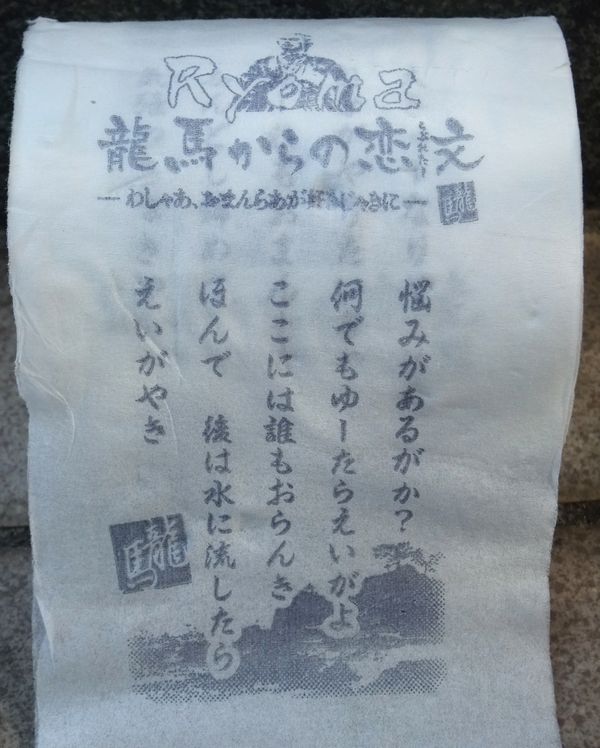 Ryoma
龍馬からの恋文
らぶれたー
― わしゃあ、おまんらあが好きじゃきに ―
龍馬
悩みがあるがか?
何でもゆーたらえいがよ
ここには誰もおらんき
ほんで 後は水に流したら
えいがやき
龍馬